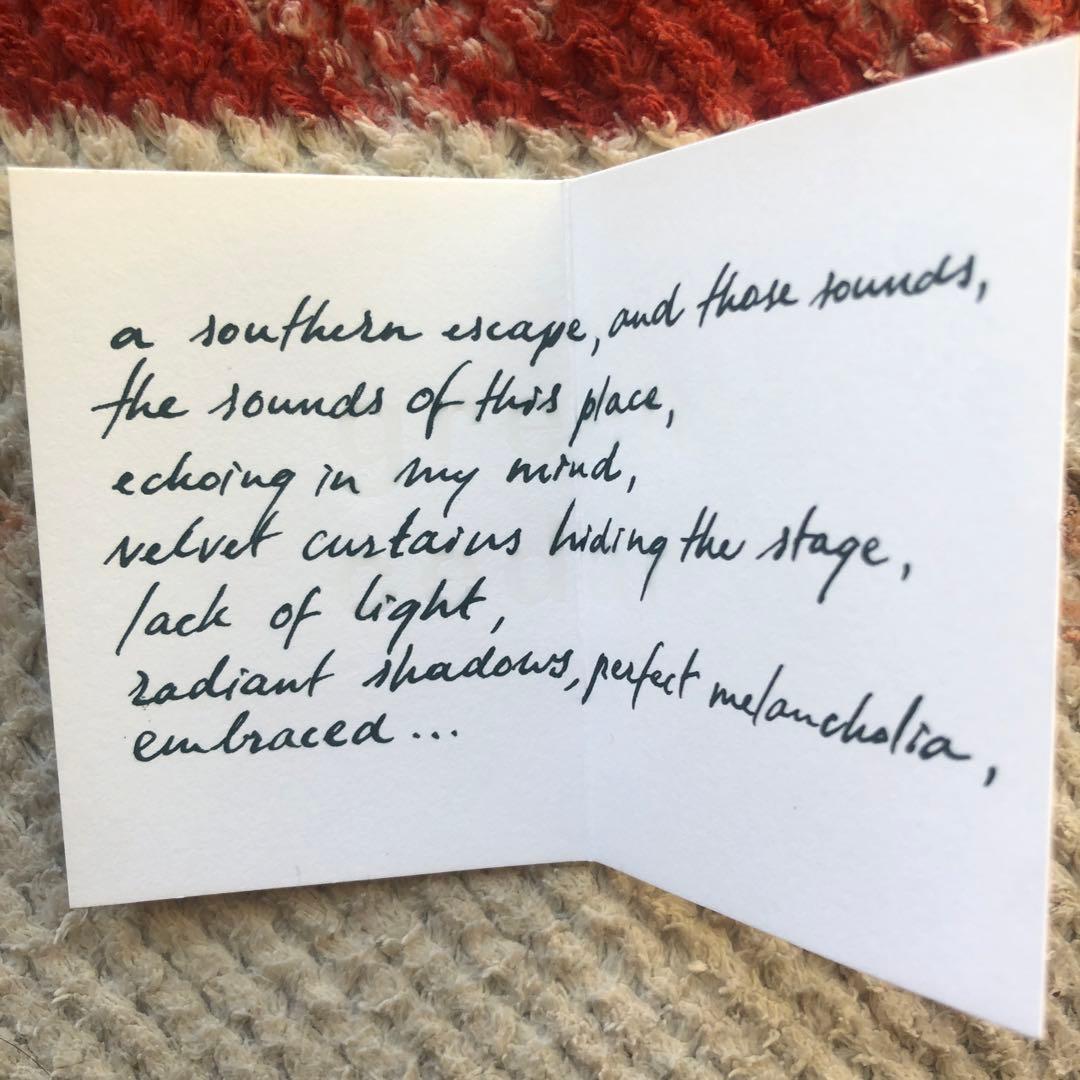 a southern escape, and those sounds,
the sounds of this place,
echoing in my mind,
velvet curtains hiding the stage,
lack of light,
radiant shadows, perfect melancholia,
embraced...